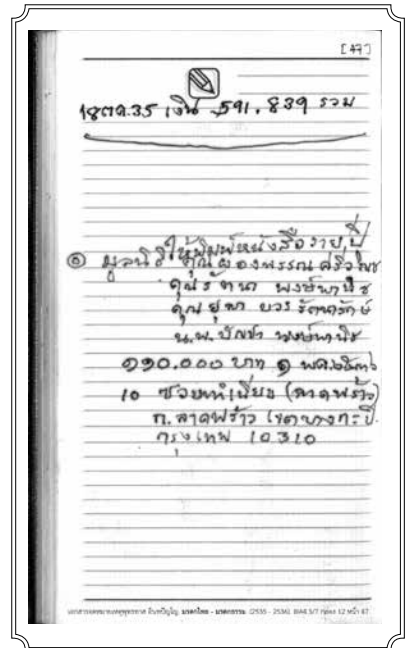 [47]
18ตค.35 เงิน 591,839 รวม
๏ มูลนิธิให้พิมพ์หนังสือรายปี
คุณผ่องพรรณ
คุณรัตนา พงษ์พานิช
คุณยุพา บวรรัตนารักษ์
น.พ. บัญชา พงษ์พานิช
๑๑๐.๐๐๐ บาท ๑ พค.
10 ซอย (ลาดพร้าว)
ถ.ลาดพร้าว เขตบางกะปิ.
กรุงเทพ 10310
เอกสารจดหมายเหตุพุทธทาส อินทปัญโญ. มรดกไทย - มรดกธรรม. (2535 - 2536). BIA4.5/7 กล่อง 12 หน้า 47